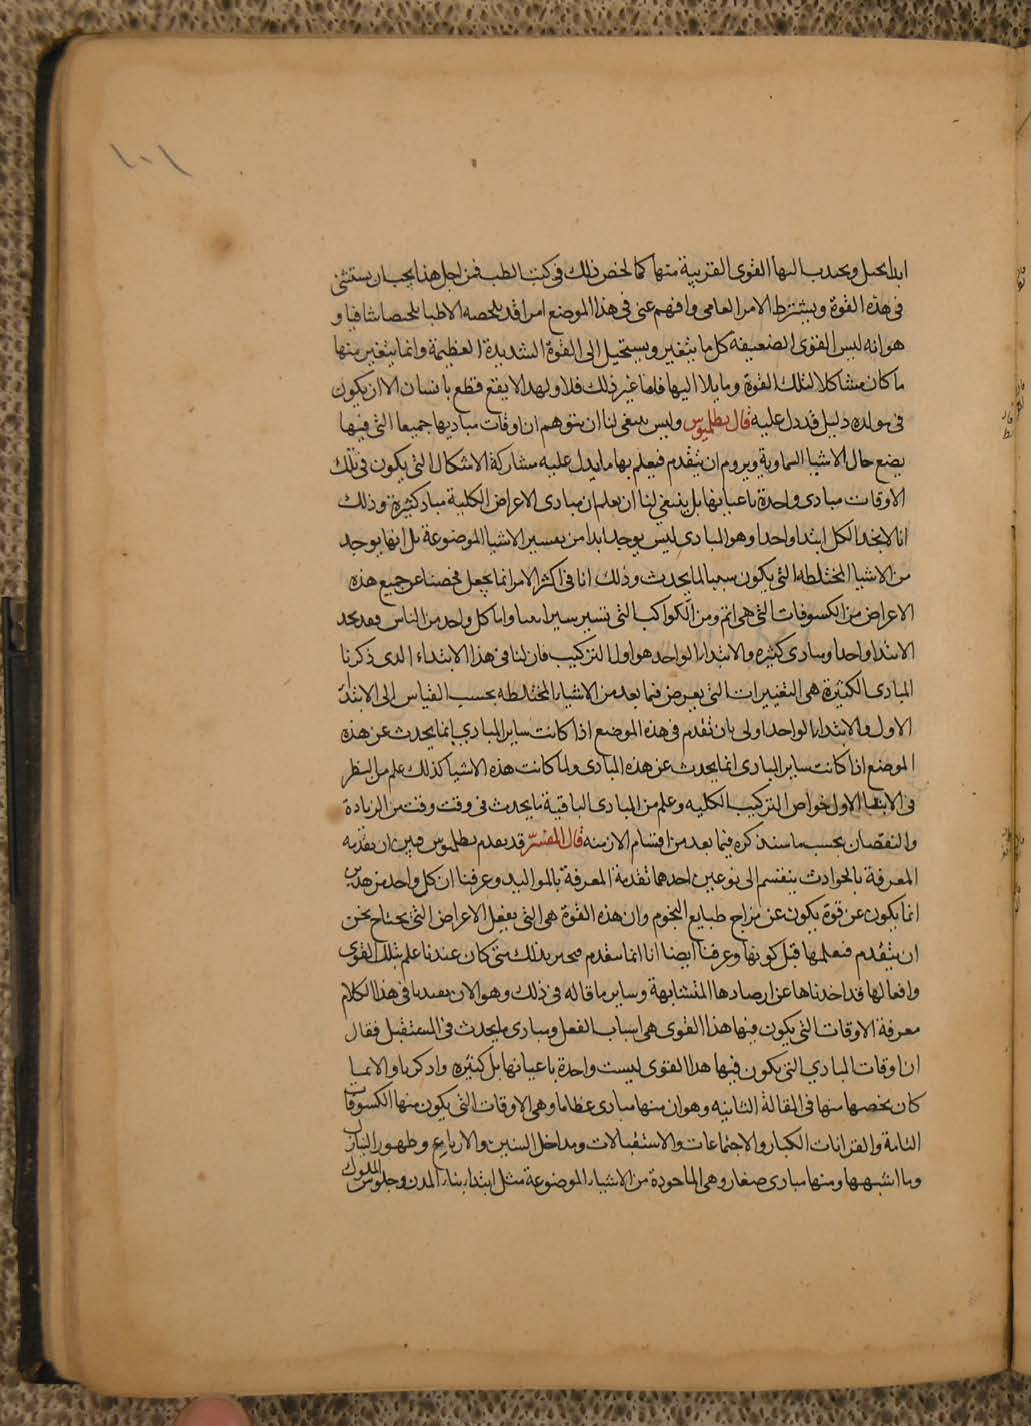 ١٠١
ابدا يحيل ويجذب اليها القوى القريبة منها كما لخص ذلك فى كتب الطب فمن اجل هذا يجب ان يستثنى
فى هذه القوة ويشترط الامر العامى وافهم عنى فى هذا الموضع امرا قد يلخصه الاطبا تلخيصا شافيا و
هو انه ليس القوى الضعيفة كل ما يتغير ويستحيل الى القوة الشديدة العظيمة وانما يتغير منها
ما كان مشاكلا لتلك القوة وما يلا اليها فاما غير ذلك فلا ولهذا لا يقع قطع بانسان الا ان يكون
فى مولده دليل قد دل عليه قال بطلميوس وليس ينبغى لنا ان نتوهم ان اوقات مباديها جميعا التى فيها
يضع حال الاشيا السماوية ويروم ان يتقدم فيعلم بها ما يدل عليه مشاركة الاشكال التى يكون فى تلك
الاوقات مبادى واحدة باعيانها بل ينبغى لنا ان نعلم ان مبادى الاعراض الكلية مباد كثيرة وذلك
انا لا نجد الكل ابتدا واحدا وهو المبادى ليس يوجد ابدا من تفسير الاشيا الموضوعة بل انها يوجد
من الاشيا المختلطه التى يكون سببا لما يحدث وذلك انا فى اكثر الامر انما نجعل فحصنا عن جميع هذه
الاعراض من الكسوفات التى هى اتم ومن الكواكب التى تسير سيرا واما كل واحد من الناس فقد نجد
الابتدا واحدا ومبادى كثيره والابتدا الواحد هو اول التركيب فان لنا فى هذا الابتداء الذى ذكرنا
المبادى الكثيرة هى التغييرات التى يعرض فيما بعد من الاشياء المختلطه بحسب القياس الى الابتدا
الاول والابتدا الواحد اولى بان تقدم فى هذه الموضع اذا كانت ساير المبادى انما يحدث عن هذه
الموضع اذا كانت ساير المبادى انما يحدث عن هذه المبادى ولما كانت هذه الاشيا كذلك علم من النظر
فى الابتدا الاول خواص التركيب الكليه وعلم من المبادى الباقية ما يحدث فى وقت وقت من الزيادة
والنقصان بحسب ما سنذكره فيما بعد من اقسام الازمنه قال المفسر قد تقدم بطلميوس فبين ان تقدمه
المعرفة بالحوادث ينقسم الى نوعين احدهما تقدمة المعرفة بالمواليد وعرفنا ان كل واحد من هذين
انما يكون عن قوة يكون عن مزاج طبايع النجوم وان هذه القوة هى التى يفعل الاعراض التى يحتاج نحن
ان يتقدم فنعلمها قبل كونها وعرفنا ايضا انا انما نتقدم فنخبر بذلك متى كان عندنا علم بتلك القوى
وافعالها قد اخذناها عن ارصادها المتشابهة وساير ما قاله فى ذلك وهو الان يفيدنا فى هذا الكلام
معرفة الاوقات التى يكون منها هذا القوى هى اسباب الفعل ومبادى ما يحدث فى المستقبل فقال
ان اوقات المبادى التى يكون فيها هذا القوى ليست واحدة باعيانها بل كثيره واذكرنا والانسا
كان يخصها منها فى المقالة الثانيه وهو ان منها مبادى عظاما وهى الاوقات التى يكون منها الكسوفات
التامة والقرانات الكبار والاجتماعات والاستقبالات ومداخل السنين والارابيع وظهور النيازك
وما اشبهها ومنها مبادى صغار وهى الماخوذة من الاشياء الموضوعة مثل ابتداء بناء المدن وجلوس الملوك